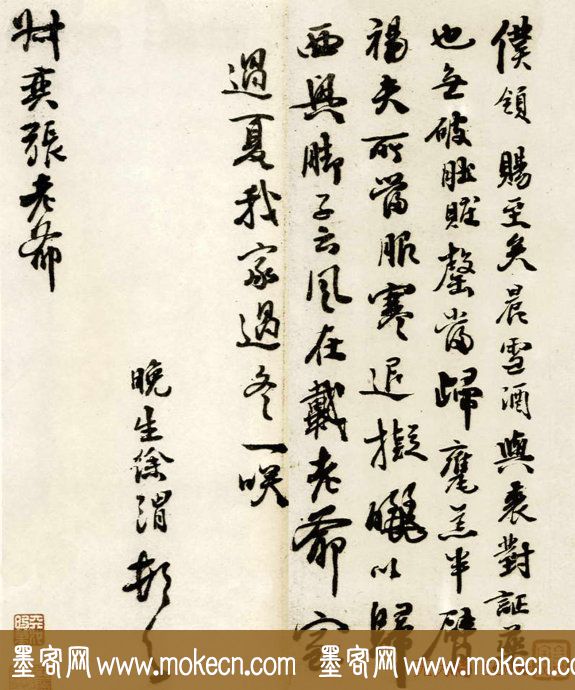 僕領賜至矣晨雪酒與裘對証藥
也無破肚臟罄當歸甕羔半臂
褐夫所嘗服寒退擬曬以歸
西興脚子云風在戴老爺家
過夏我家過冬一咲
晚生徐渭頓首
張老爺
墨客网 www.mokecn.com 墨客网 www.mokecn.com